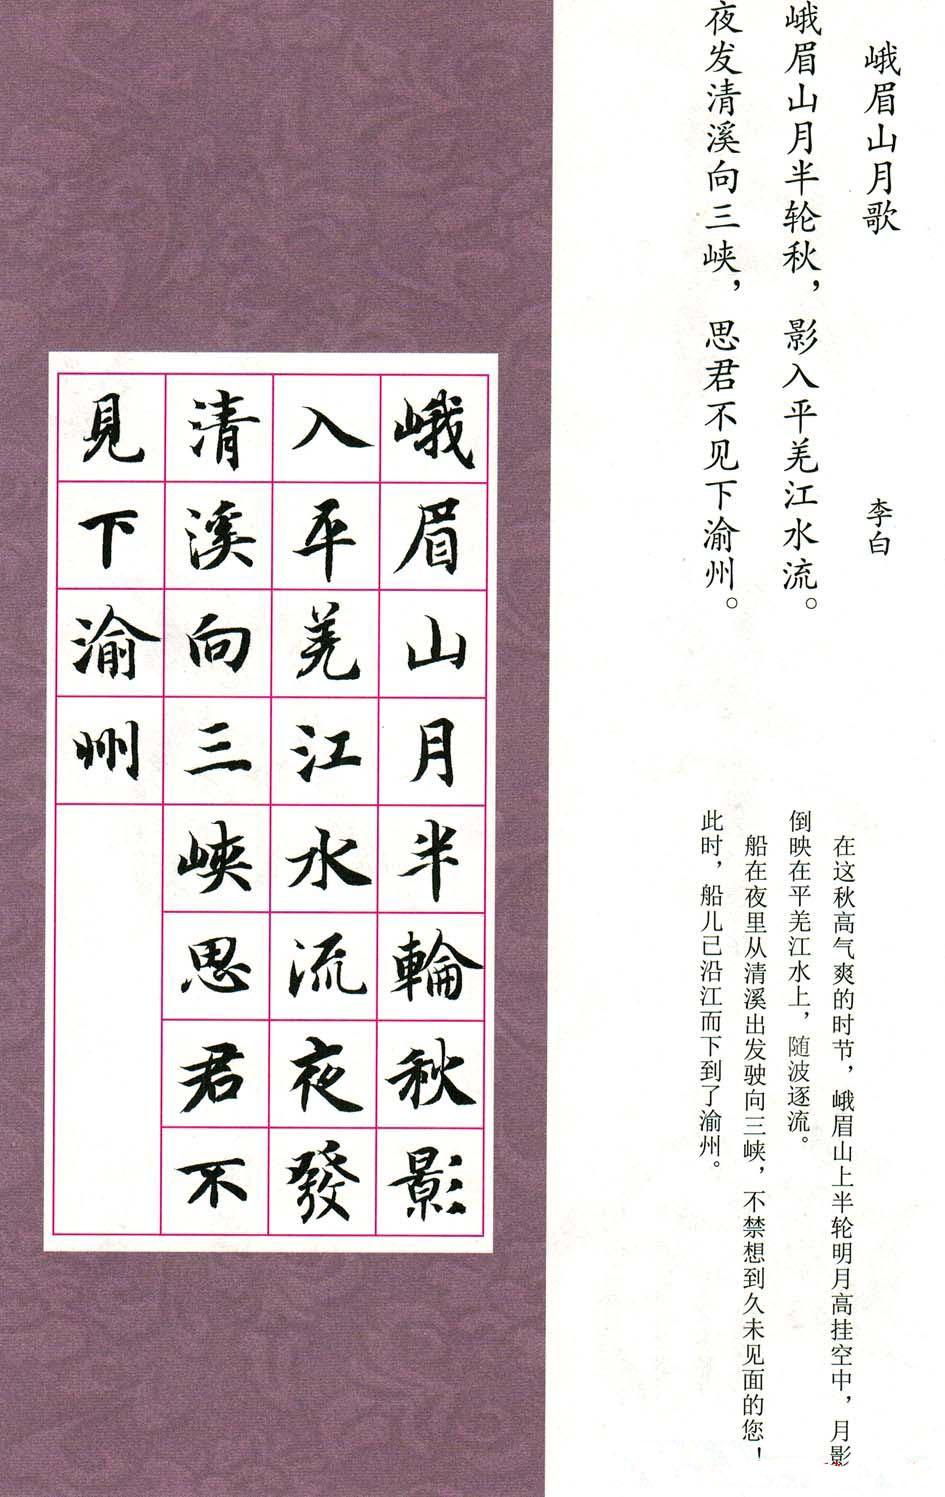 峨眉山月歌
李白
峨眉山月半轮秋，影入平羌江水流。
夜发清溪向三峡，思君不见下渝州。
在这秋高气爽的时节，峨眉山上半轮明月高挂空中，月影
倒映在平羌江水上，随波逐流。
船在夜里从清溪出发驶向三峡，不禁想到久未见面的您！
此时，船儿已沿江而下到了渝州。
峨眉山月半輪秋影
入平羌江水流夜發
清溪向三峽思君不
見下渝州